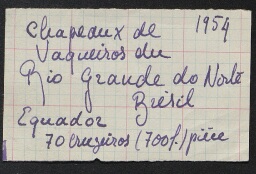 Chapeaux de 1954
Vaqueiros du
Rio Grande do Norte
Brésil
Equador
70 cruzeiros (700f.) pièce